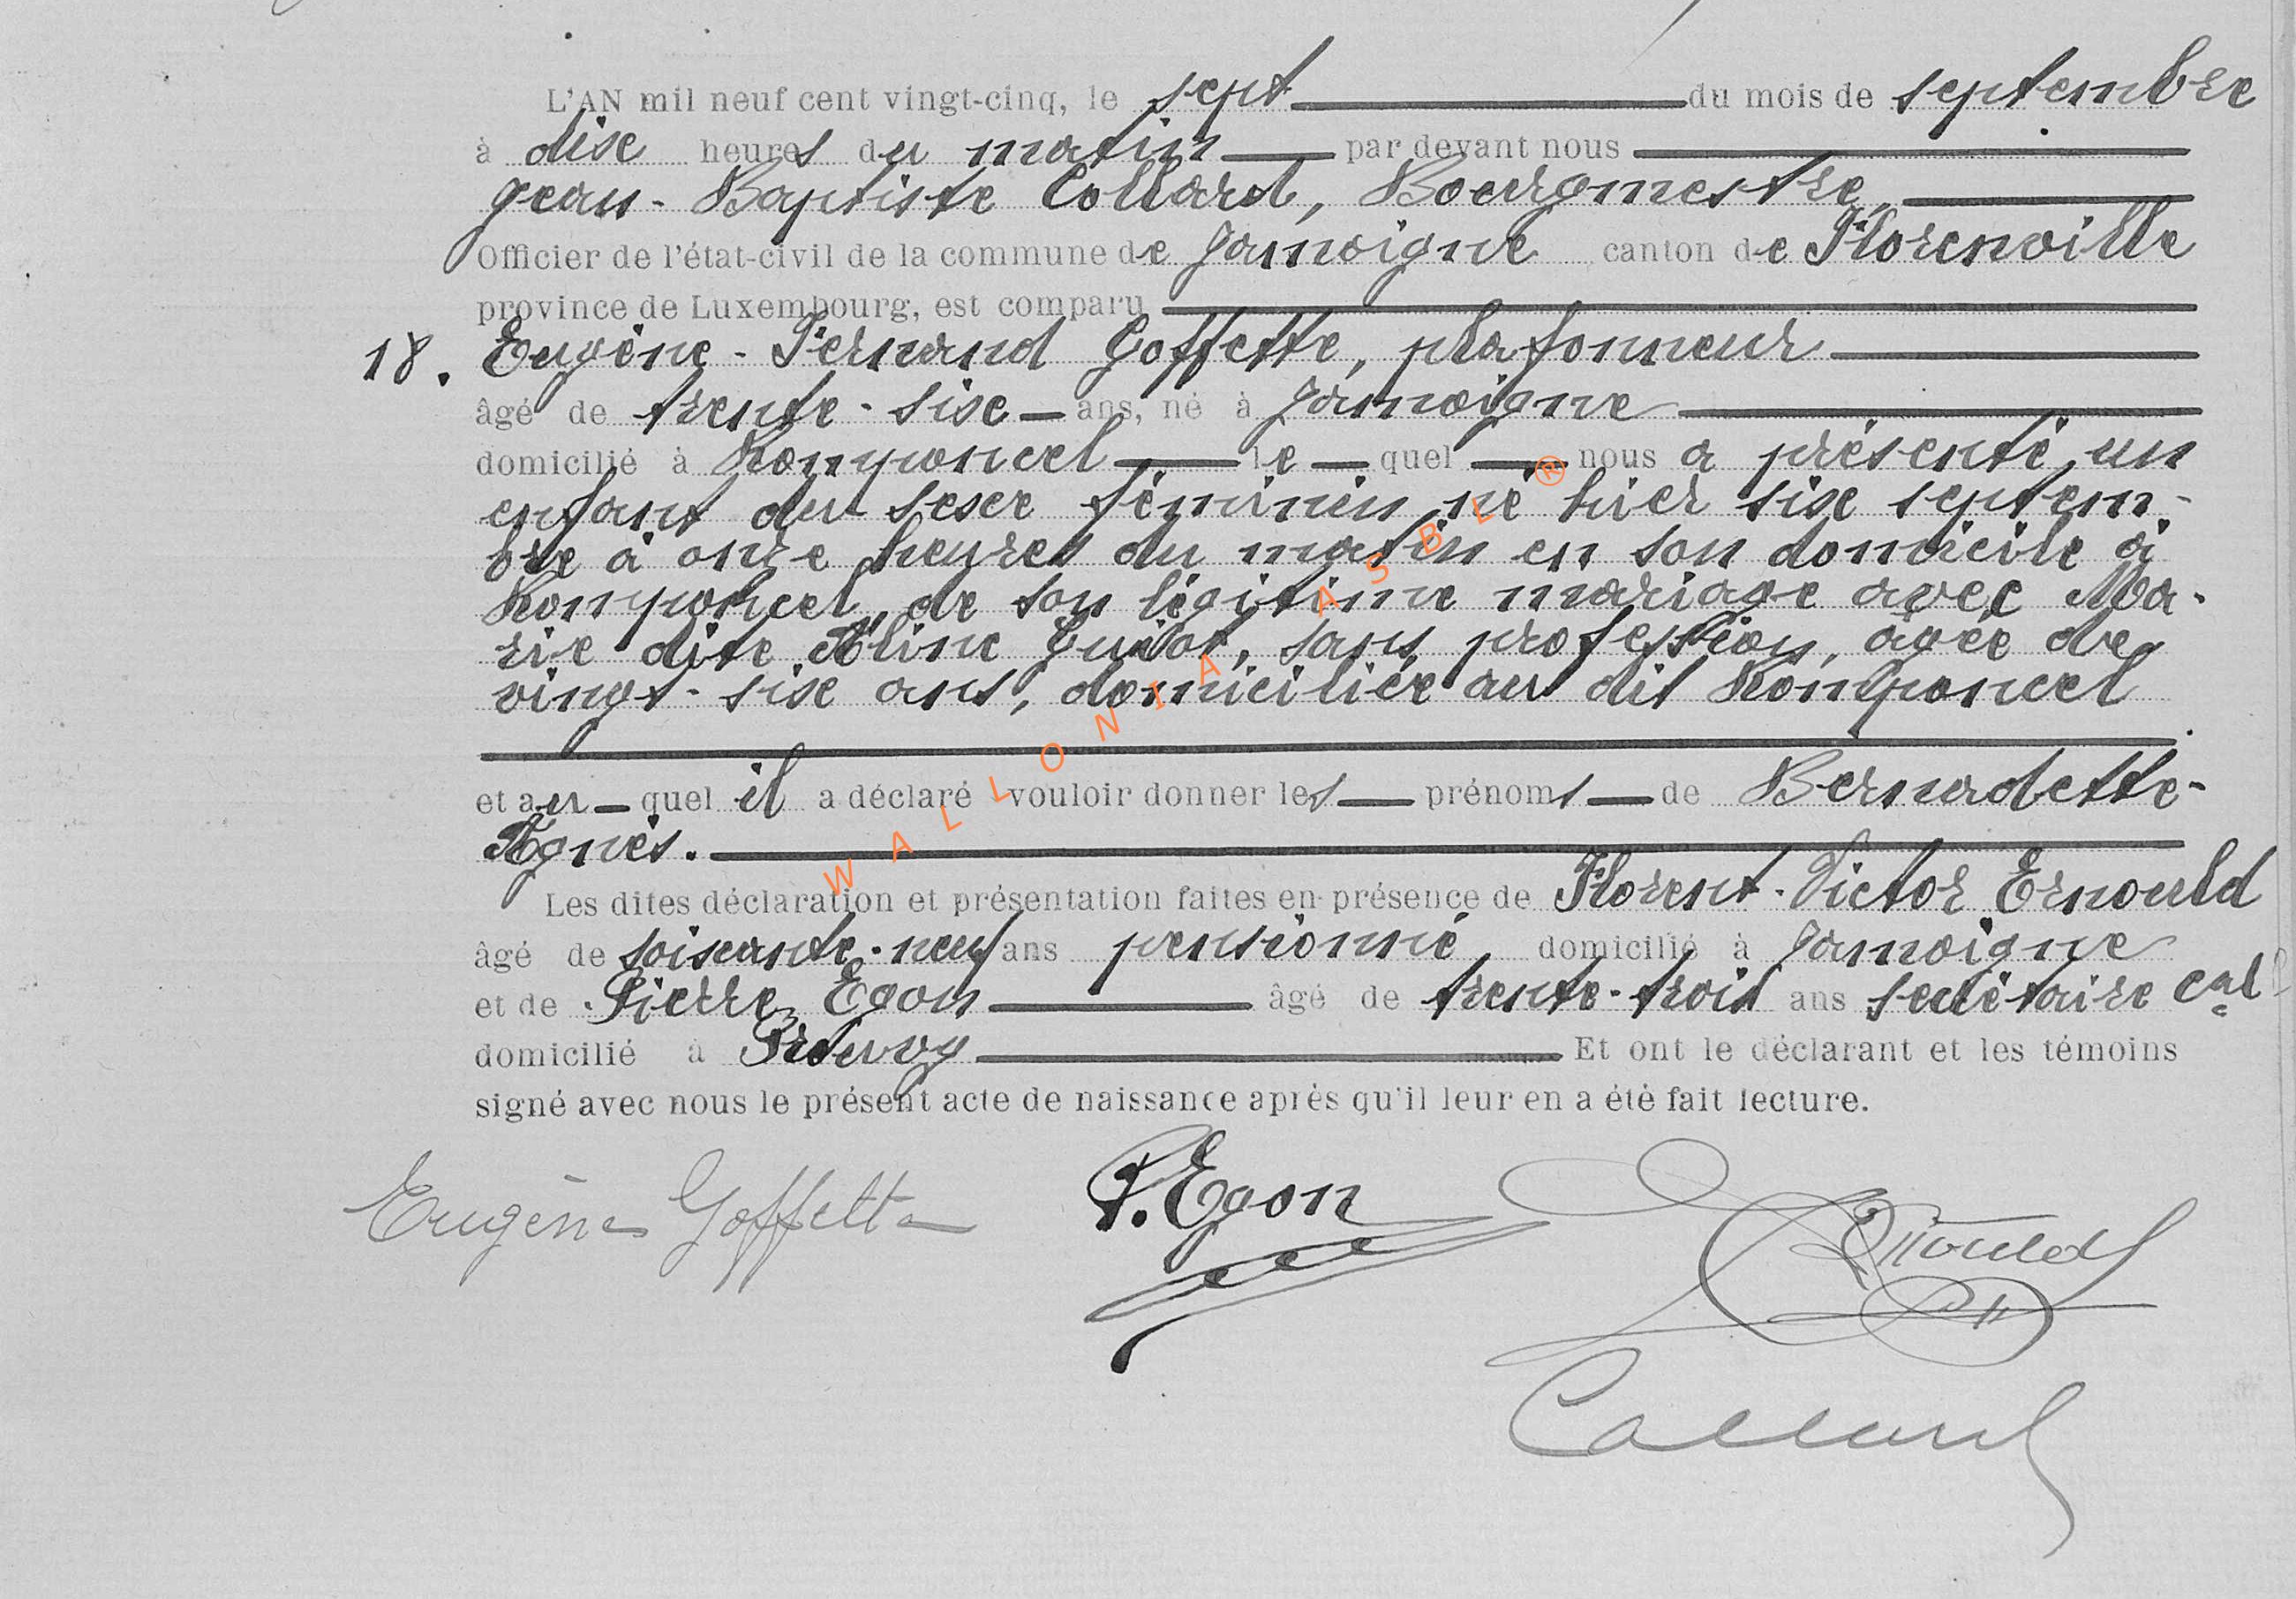 L'AN mil neuf cent vingt-cinq, le sept du mois de septembre
à dix heures du matin par devant nous
Jean-Baptiste Collard, Bourgmestre,
Officier de l'état-civil de la commune de Jamoigne canton de Florenville
province de Luxembourg, est comparu
18. Eugène-Fernand Goffette, plafonneur
âgé de trente-six ans, né à Jamoigne
domicilié à Romponcel le quel nous a présenté un
enfant du sexe féminin né hier six septem-
bre à onze heures du matin en son domicile à
Romponcel, de son légitime mariage avec Ma-
rie dite Aline Guiot, sans profession, âgée de
vingt-six ans, domiciliée au dit Romponcel
et au quel il a déclaré vouloir donner les prénoms de Bernadette-
Agnès.
Les dites déclaration et présentation faites en présence de Florent-Victor Ernould
âgé de soixante-neuf ans pensionné domicilié à Jamoigne
et de Pierre Egon âgé de trente-trois ans secrétaire cal
domicilié à Prouvy Et ont le déclarant et les témoins
signé avec nous le présent acte de naissance après qu'il leur en a été fait lecture.
Eugène Goffette P. Egon Ernould
Collard
WALLONIA ASBL ®